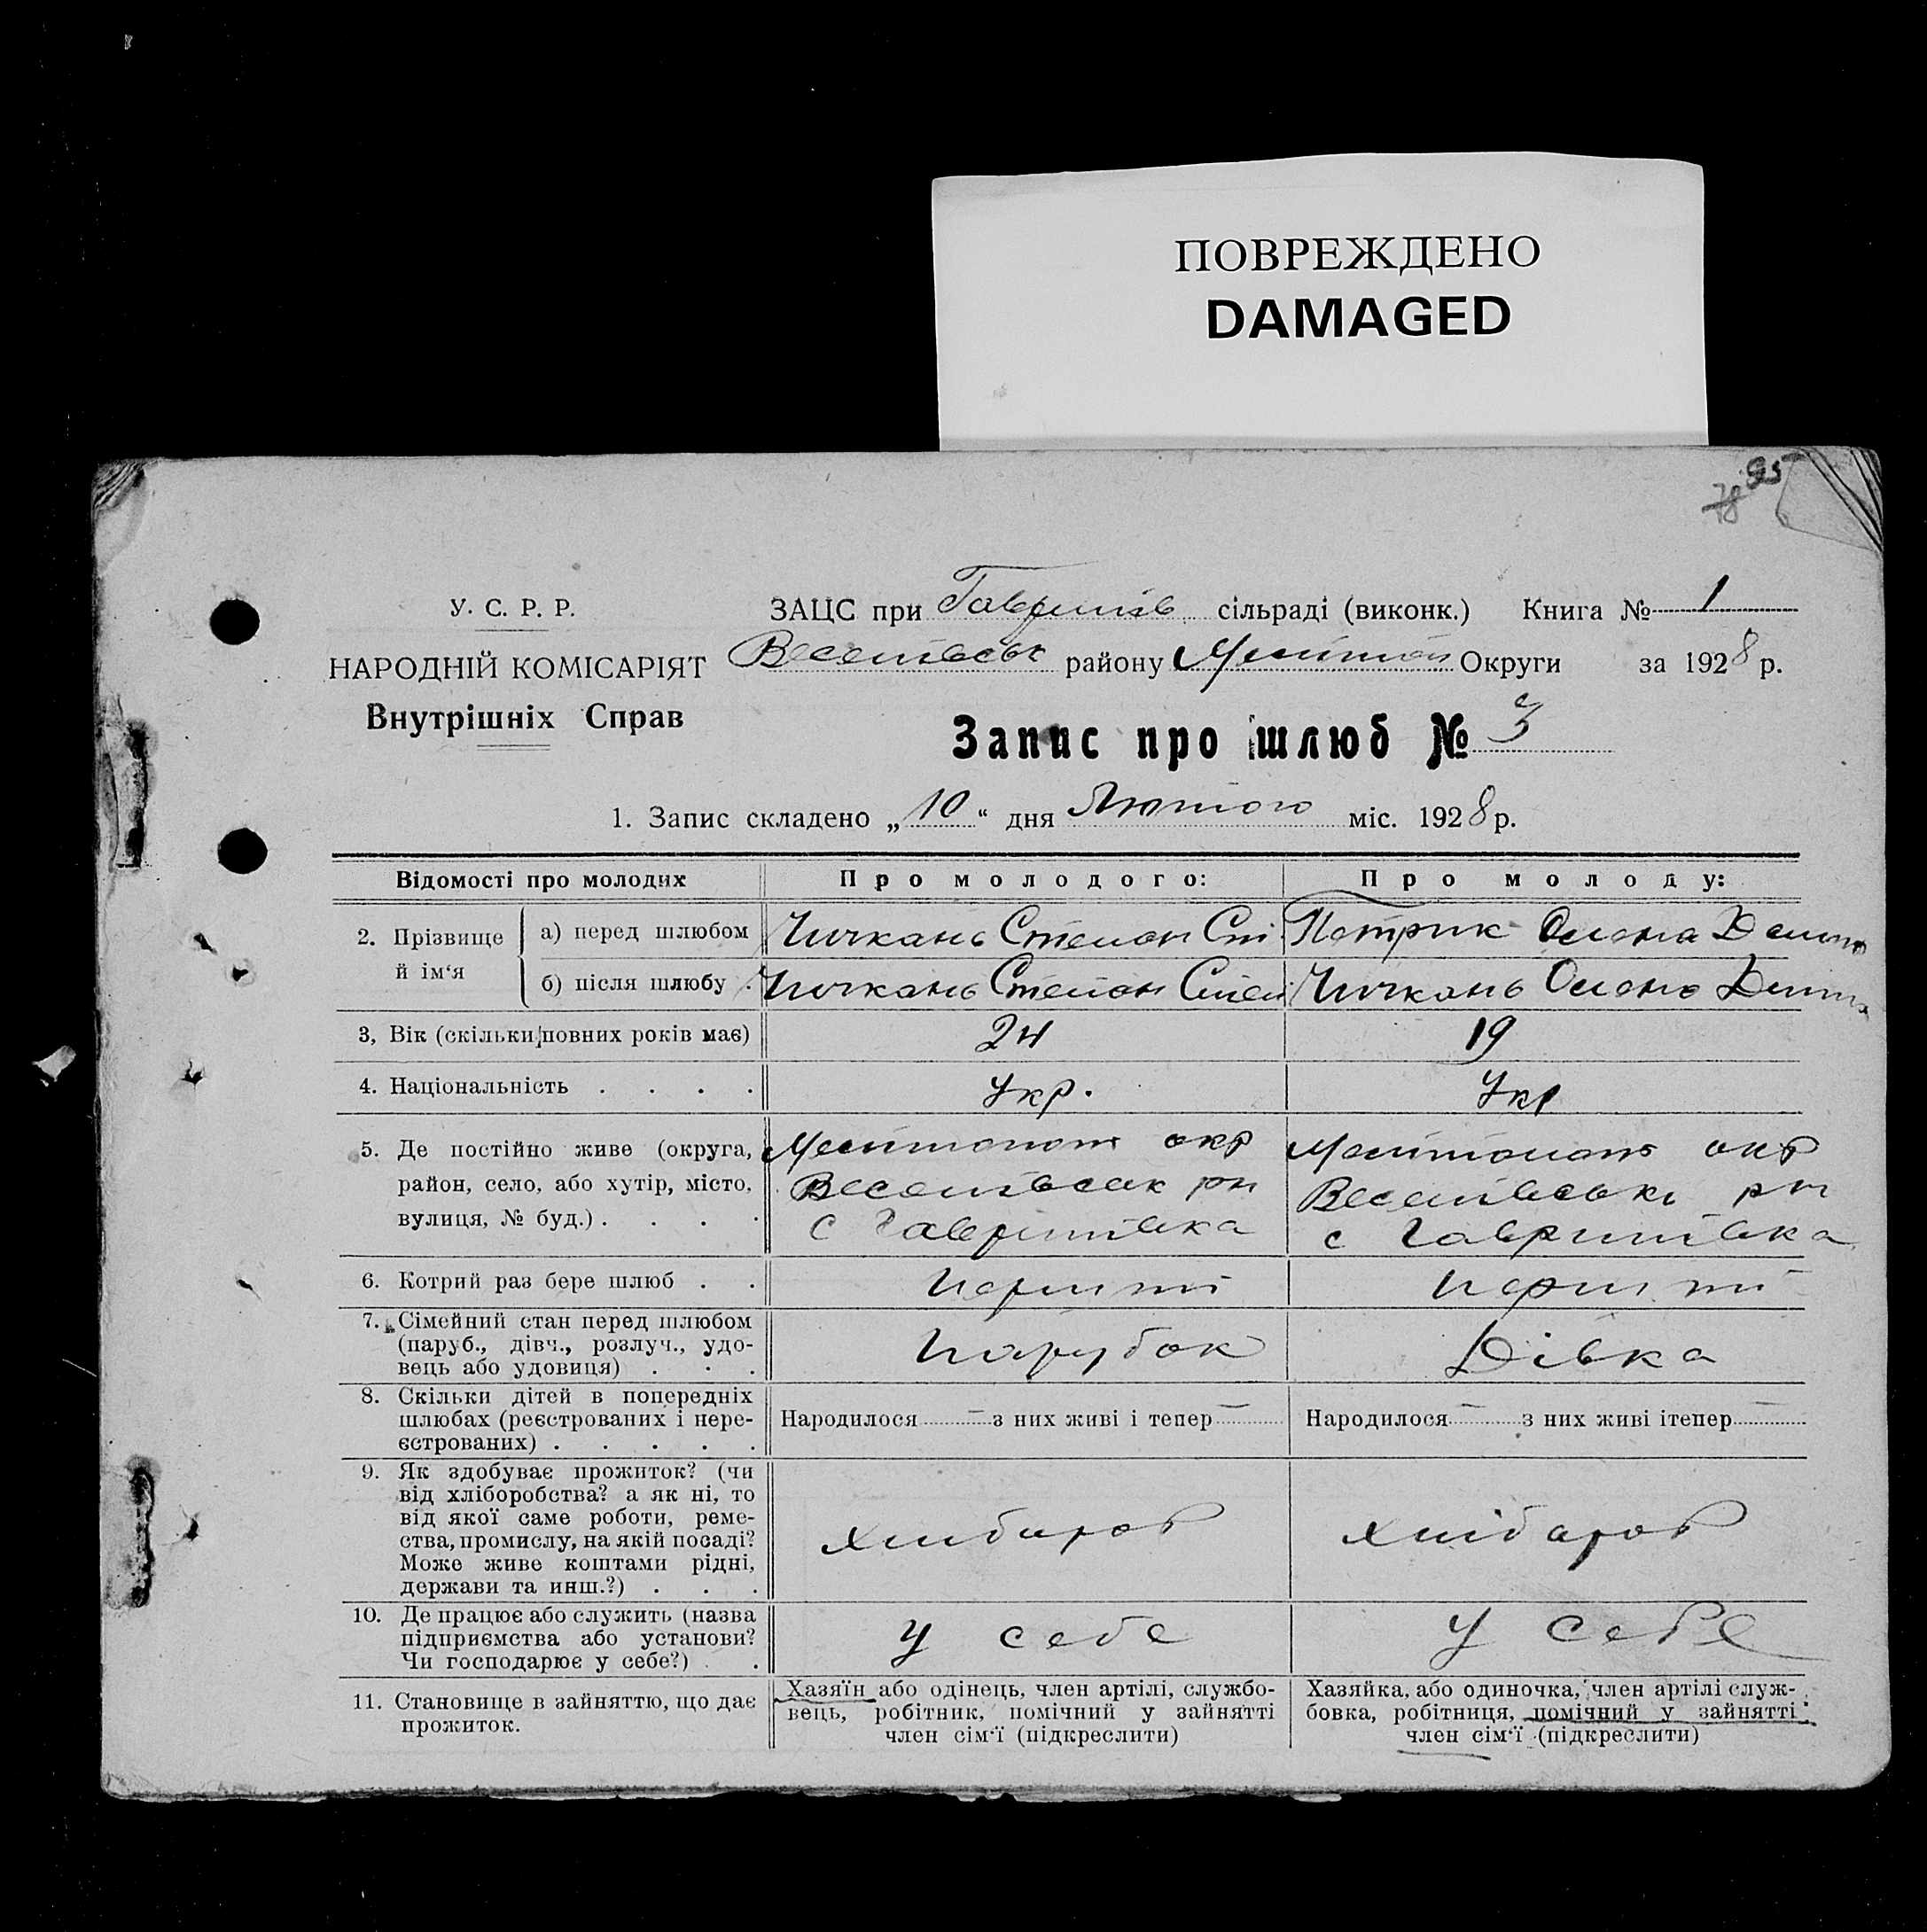 ПОВРЕЖДЕНО
DAMAGED
95
78
У. С. Р. Р.
НАРОДНІЙ КОМІСАРІЯТ
Внутрішніх Справ
ЗАЦС при Гаврилів. сільраді (виконк.) Книга № 1
Веселівськ району Меліт Округи за 1928 р.
Запис про шлюб № 3
1. Запис складено „10“ дня Лютого міс. 1928 р.
Відомості про молодих
Про молодого:
Про молоду:
2. Прізвище й ім‘я
а) перед шлюбом
Чичкань Степан Ст
Петрик Олена
б) після шлюбу .
Чичкань Степан Степ
Чичкань Олена
3, Вік (скільки повних років має)
24
19
4. Національність . . . .
Укр.
Укр
5. Де постійно живе (округа,
район, село, або хутір, місто,
вулиця, № буд.) . . . .
Мелітопол окр
Веселівськ рн
с Гаврилівка
Мелітопол окр
Веселівськ рн
с Гаврилівка
6. Котрий раз бере шлюб . .
перший
перший
7. Сімейний стан перед шлюбом
(паруб., дівч., розлуч., удо-
вець або удовиця) . . .
парубок
Дівка
8. Скільки дітей в попередніх
шлюбах (реєстрованих і нере-
єстрованих) . . . . .
Народилося — з них живі і тепер —
Народилося — з них живі ітепер —
9. Як здобуває прожиток? (чи
від хліборобства? а як ні, то
від якої саме роботи, реме-
ства, промислу, на якій посаді?
Може живе коштами рідні,
держави та инш.?) . . .
хлибароб
хлібароб
10. Де працює або служить (назва
підприємства або установи?
Чи господарює у себе?) . .
у себе
у себе
11. Становище в зайняттю, що дає
прожиток.
Хазяїн або одінець, член артілі, службо-
вець, робітник, помічний у зайнятті
член сім‘ї (підкреслити)
Хазяйка, або одиночка, член артілі служ-
бовка, робітниця, помічний у зайнятті
член сім‘ї (підкреслити)